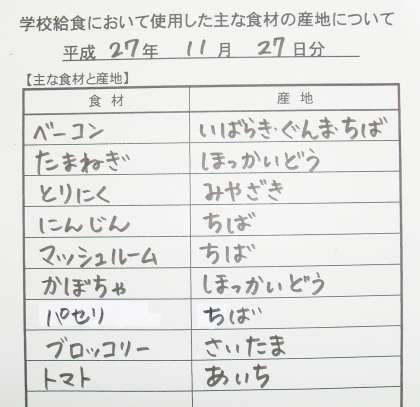 学校給食において使用した主な食材の産地について
平成 27年 11月 27日分
【主な食材と産地】
食材 産地
ベーコン いばらき・ぐんま・ちば
たまねぎ ほっかいどう
とりにく みやざき
にんじん ちば
マッシュルーム ちば
かぼちゃ ほっかいどう
パセリ ちば
ブロッコリー さいたま
トマト あいち